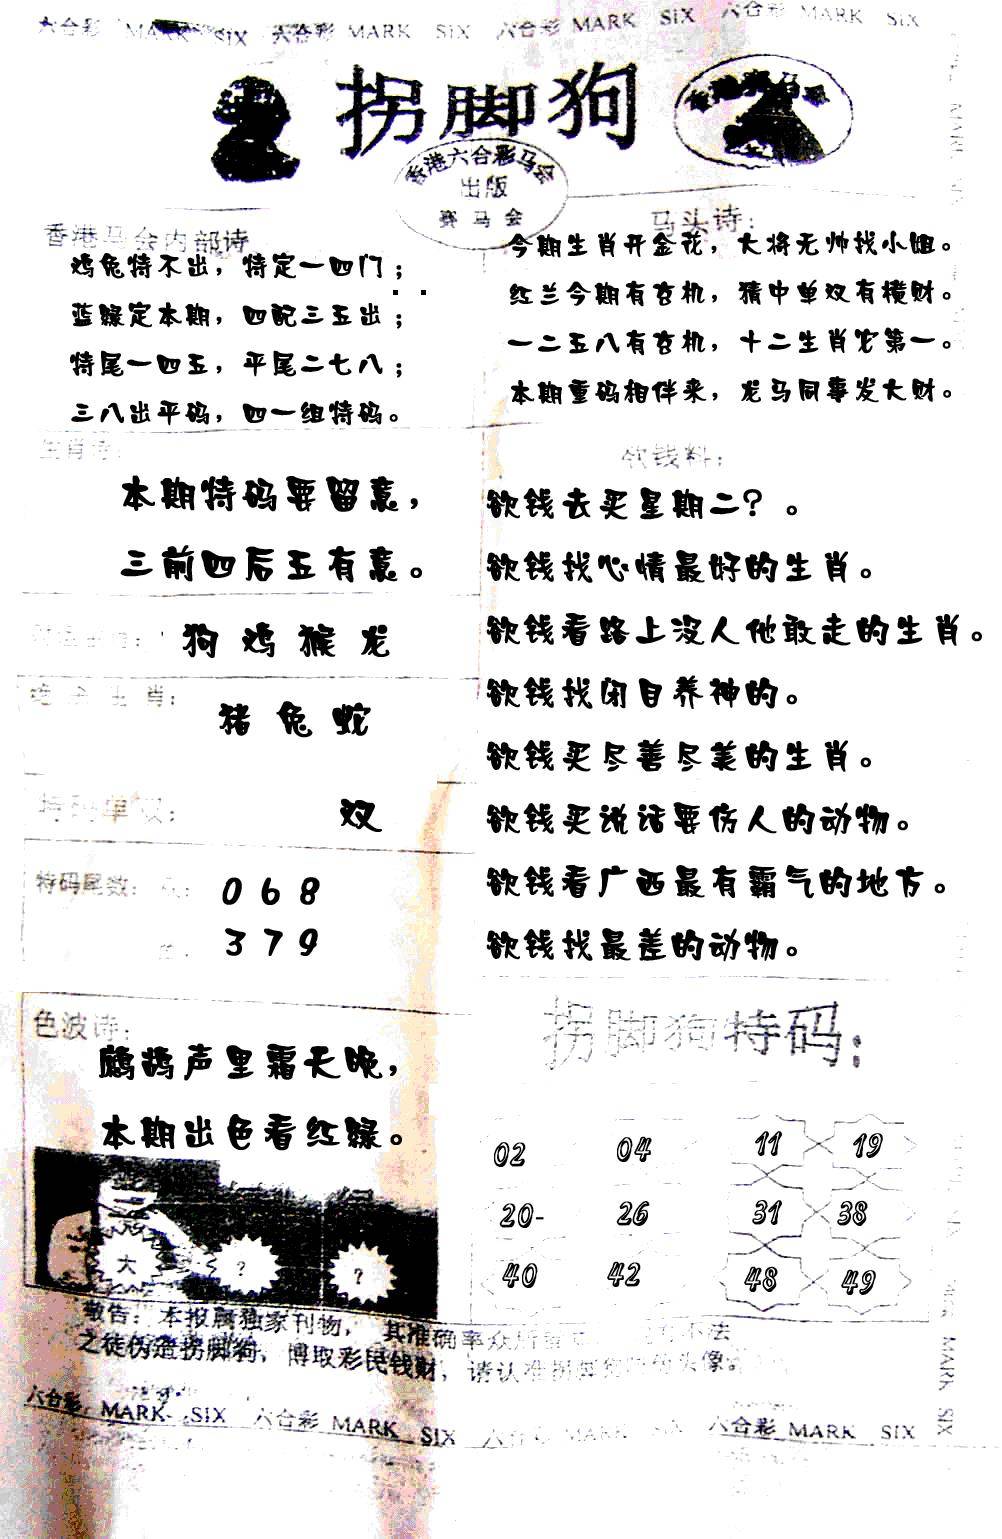 六合彩 MARK SIX 六合彩 MARK SIX 六合彩 MARK SIX 六合彩 MARK SIX
拐脚狗
香港六合彩马会
出版
赛马会
香港马会内部诗
鸡兔特不出，特定一四门；
蓝绿定本期，四配三五出；
特尾一四五，平尾二七八；
三八出平码，四一组特码。
马头诗：
今期生肖开金花，大将无帅找小姐。
红兰今期有玄机，猜中单双有横财。
一二五八有玄机，十二生肖蛇第一。
本期重码相伴来，龙马同事发大财。
生肖诗：
本期特码要留意，
三前四后五有意。
狗 鸡 猴 龙
生肖：
猪 兔 蛇
特码单双：
双
特码尾数：
0 6 8
3 7 9
色波诗：
鹧鸪声里霜天晚，
本期出色看红绿。
大 ？ ？
欲钱料：
欲钱去买星期二？。
欲钱找心情最好的生肖。
欲钱看路上没人他敢走的生肖。
欲钱找闭目养神的。
欲钱买尽善尽美的生肖。
欲钱买说话要伤人的动物。
欲钱看广西最有霸气的地方。
欲钱找最差的动物。
拐脚狗特码：
02 04 11 19
20- 26 31 38
40 42 48 49
敬告：本报属独家刊物，其准确率众所 不法
之徒伪造拐脚狗，博取彩民钱财，请认准拐脚 头像
六合彩 MARK SIX 六合彩 MARK SIX 六合彩 MARK SIX 六合彩 MARK SIX
MARK SIX